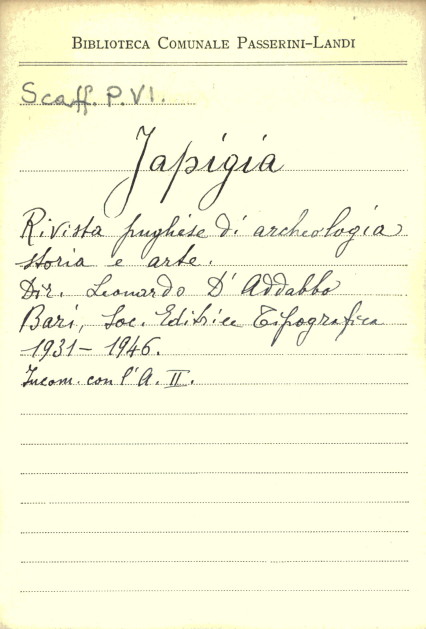 BIBLIOTECA COMUNALE PASSERINI-LANDI
Scaff. P.VI.
Japigia
Rivista pugliese di archeologia
storia e arte.
Dir. Leonardo D'Addabbo
Bari, Soc. Editrice Tipografica
1931 - 1946.
Incom. con l'A. II.